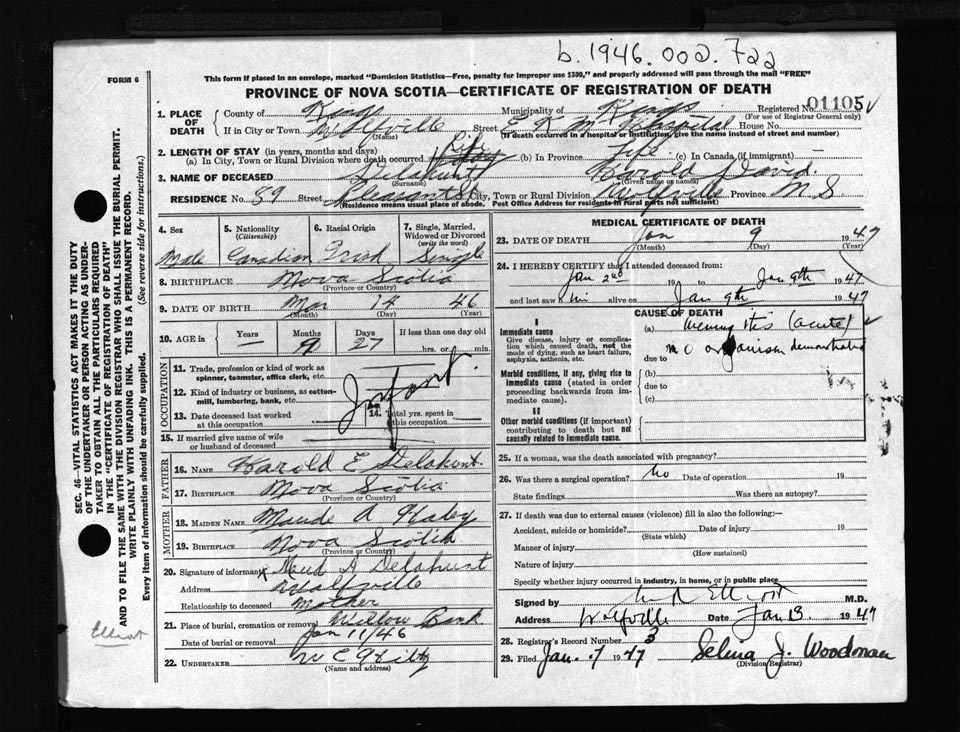 b. 1946. 002. 722
FORM 6
This form if placed in an envelope, marked "Dominion Statistics—Free, penalty for improper use $300," and properly addressed will pass through the mail "FREE"
PROVINCE OF NOVA SCOTIA—CERTIFICATE OF REGISTRATION OF DEATH
1. PLACE OF DEATH
County of Kings Municipality of Kings Registered No. 01105
(For use of Registrar General only)
If in City or Town Wolfville Street E K M Hospital House No.
(Name) (If death occurred in a hospital or institution, give the name instead of street and number)
2. LENGTH OF STAY (in years, months and days)
(a) In City, Town or Rural Division where death occurred Life (b) In Province Life (c) In Canada (if immigrant)
3. NAME OF DECEASED Delahunt Harold David
(Surname) (Given name or names)
RESIDENCE No. 89 Street Pleasant St City, Town or Rural Division Wolfville Province N S
(Residence means usual place of abode. Post Office Address for residents in rural parts not sufficient)
4. Sex
Male
5. Nationality
(Citizenship)
Canadian
6. Racial Origin
Irish
7. Single, Married, Widowed or Divorced
(write the word)
Single
8. BIRTHPLACE Nova Scotia
(Province or Country)
9. DATE OF BIRTH Mar 14 46
(Month) (Day) (Year)
10. AGE in
Years Months Days If less than one day old
— 9 27 hrs. or min.
OCCUPATION
11. Trade, profession or kind of work as spinner, teamster, office clerk, etc.
12. Kind of industry or business, as cotton-mill, lumbering, bank, etc.
Infant
13. Date deceased last worked at this occupation
14. Total yrs. spent in this occupation
15. If married give name of wife or husband of deceased
FATHER
16. NAME Harold E Delahunt
17. BIRTHPLACE Nova Scotia
(Province or Country)
MOTHER
18. MAIDEN NAME Maude A Haley
19. BIRTHPLACE Nova Scotia
(Province or Country)
20. Signature of informant x Maud A Delahunt
Address Wolfville
Relationship to deceased Mother
21. Place of burial, cremation or removal Willow Bank
Date of burial or removal Jan 11/46
22. UNDERTAKER W C
(Name and address)
MEDICAL CERTIFICATE OF DEATH
23. DATE OF DEATH Jan 9 1947
(Month) (Day) (Year)
24. I HEREBY CERTIFY that I attended deceased from:
Jan 2nd 19 to Jan 9th 1947
and last saw him alive on Jan 9th 1947
CAUSE OF DEATH
I
Immediate cause
Give disease, injury or complication which caused death, not the mode of dying, such as heart failure, asphyxia, asthenia, etc.
(a) Meningitis (acute)
no organism demonstrated
due to
Morbid conditions, if any, giving rise to immediate cause (stated in order proceeding backwards from immediate cause).
(b)
due to
(c)
II
Other morbid conditions (if important) contributing to death but not causally related to immediate cause.
25. If a woman, was the death associated with pregnancy?
26. Was there a surgical operation? No Date of operation 19
State findings Was there an autopsy?
27. If death was due to external causes (violence) fill in also the following:—
Accident, suicide or homicide? Date of injury 19
(State which)
Manner of injury
(How sustained)
Nature of injury
Specify whether injury occurred in industry, in home, or in public place
Signed by Elliott M.D.
Address Wolfville Date Jan 13 1947
28. Registrar's Record Number 3
29. Filed Jan. 1947 Selena J. Woodman
(Division Registrar)
SEC. 46—VITAL STATISTICS ACT MAKES IT THE DUTY
OF THE UNDERTAKER OR PERSON ACTING AS UNDER-
TAKER TO OBTAIN ALL THE PARTICULARS REQUIRED
IN THE "CERTIFICATE OF REGISTRATION OF DEATH"
AND TO FILE THE SAME WITH THE DIVISION REGISTRAR WHO SHALL ISSUE THE BURIAL PERMIT.
WRITE PLAINLY WITH UNFADING INK. THIS IS A PERMANENT RECORD.
Every item of information should be carefully supplied. (See reverse side for instructions.)
Elliot